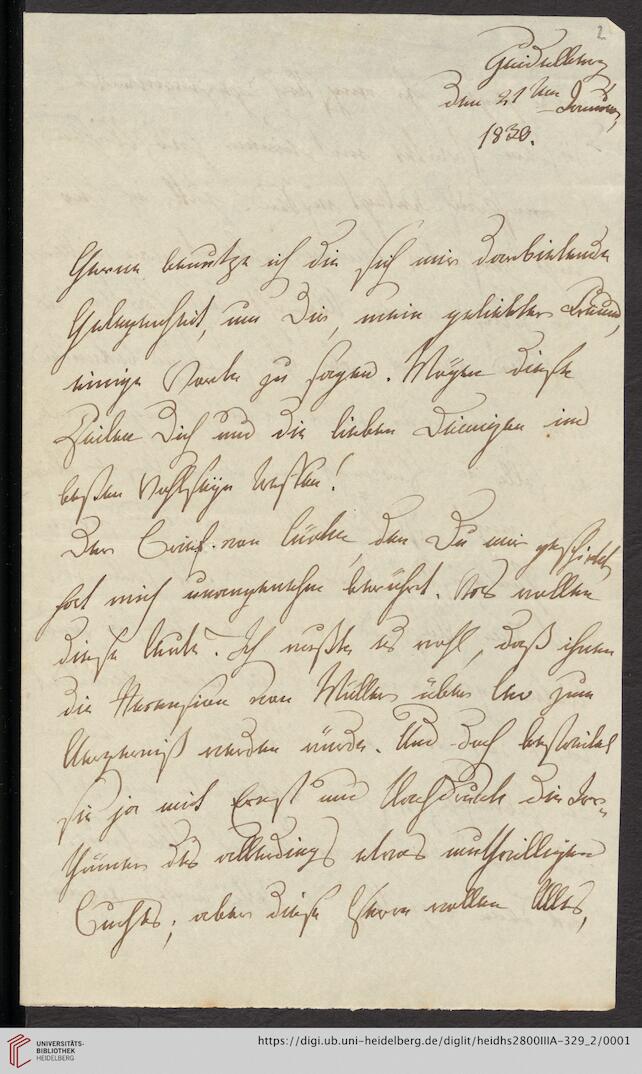 2
Heidelberg
den 21ten Januar,
1830.
Gerne benutze ich die sich mir darbietende
Gelegenheit, um Dir, mein geliebter Freund,
einige Worte zu sagen. Mögen diese
Zeilen Dich und die lieben Deinigen im
besten Wohlseyn treffen!
Der Brief von Lücke, den Du mir geschickt,
hat mich unangenehm berührt. Was wollen
diese Leute? Ich wußte es wohl, daß ihnen
die Recension von Müller über Leo zum
Aergerniß werden würde. Und doch bestreitet
sie ja mit Ernst und Nachdruck die Irr-
thümer des allerdings etwas muthwilligen
Buches; aber diese Herrn wollen Alles,
UNIVERSITÄTS-
BIBLIOTHEK
HEIDELBERG
https://digi.ub.uni-heidelberg.de/diglit/heidhs2800IIIA-329_2/0001